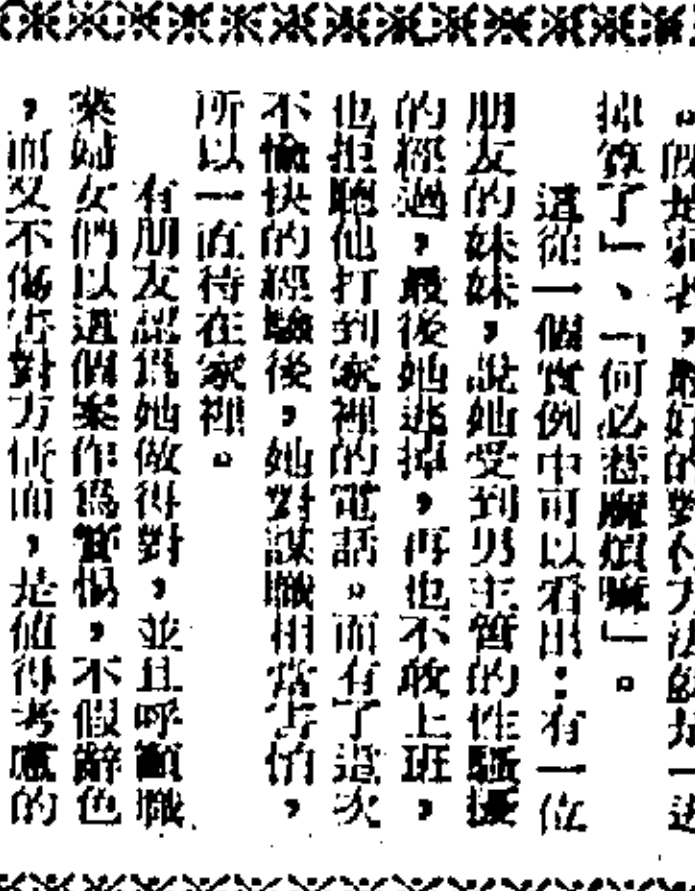 。假是弱者，最好的對付方法就是一逃
掉算了」、「何必惹麻煩嘛」。
這從一個實例中可以看出：有一位
朋友的妹妹，說她受到男主管的性騷擾
的經過，最後她逃掉，再也不敢上班，
也拒聽他打到家裡的電話。而有了這次
不愉快的經驗後，她對謀職相當害怕，
所以一直待在家裡。
有朋友認爲她做得對，並且呼籲職
業婦女們以這個案作爲警惕，不假辭色
，而又不傷害對方情面，是值得考慮的